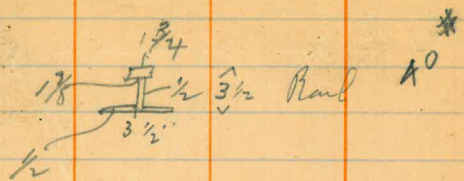 1 3/4
1 7/8 1/2 3 1/2 Rail
3 1/2"
1/2